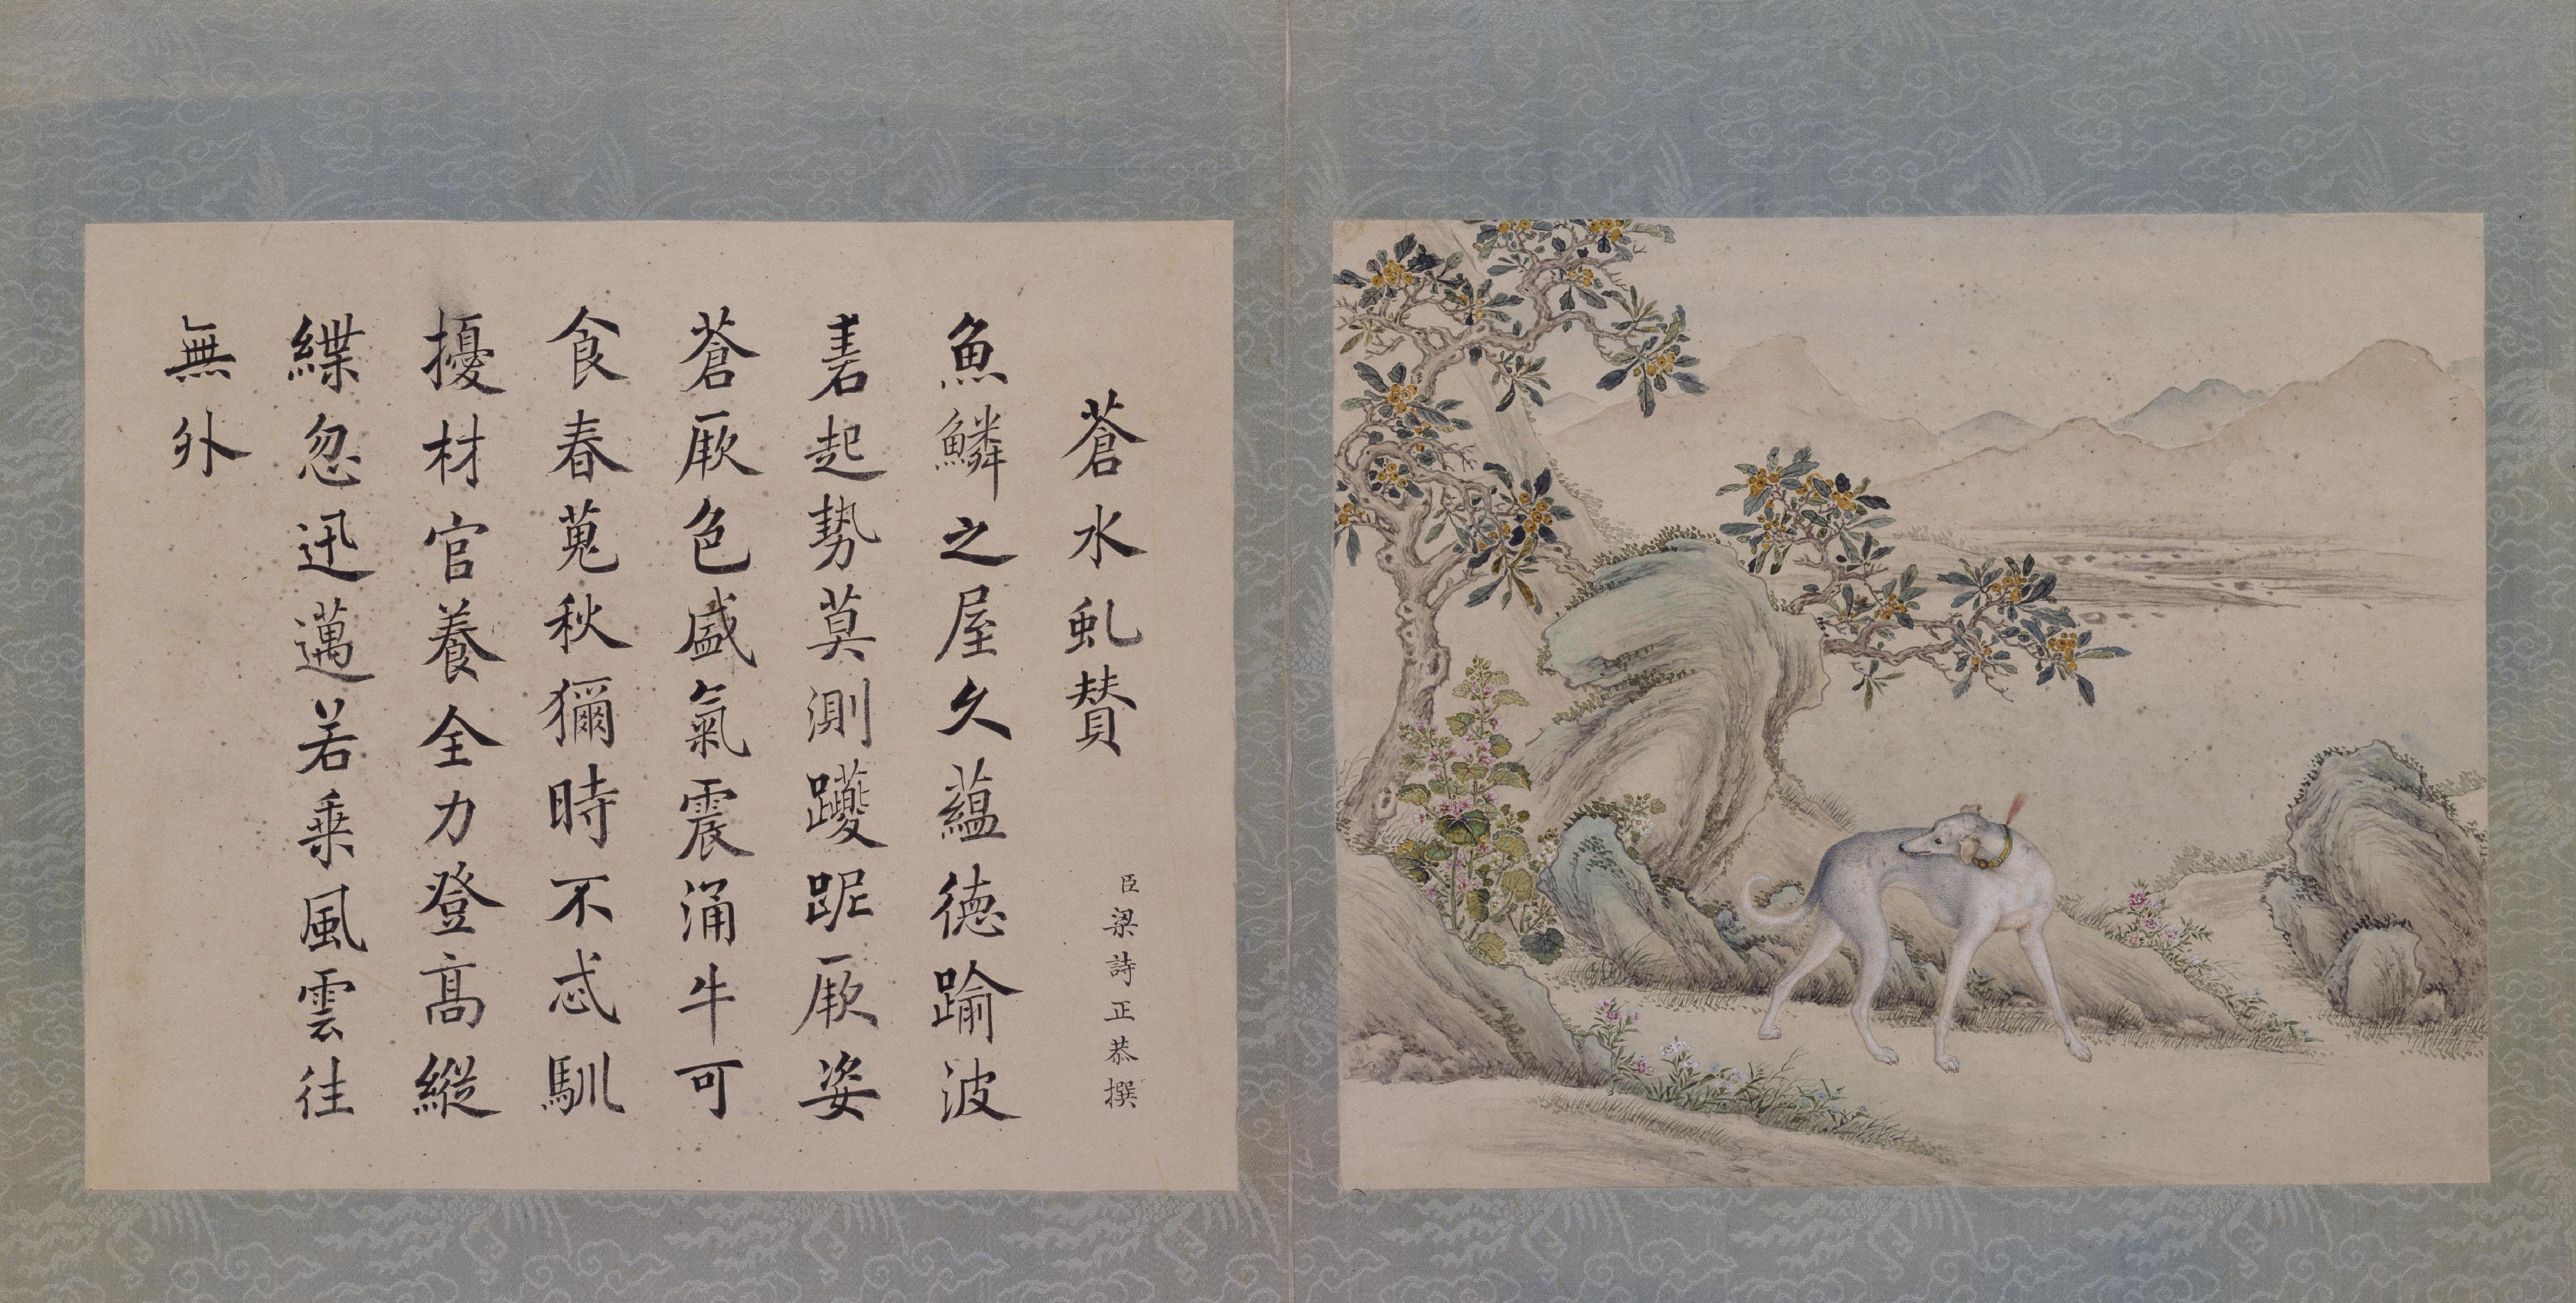 蒼水虬賛
臣梁詩正恭撰
魚鱗之屋久蘊德踰波
砉起勢莫測躨跜厥姿
蒼厥色盛氣震涌牛可
食春蒐秋獮時不忒馴
擾材官養全力登高縱
緤忽迅邁若乗風雲往
無外